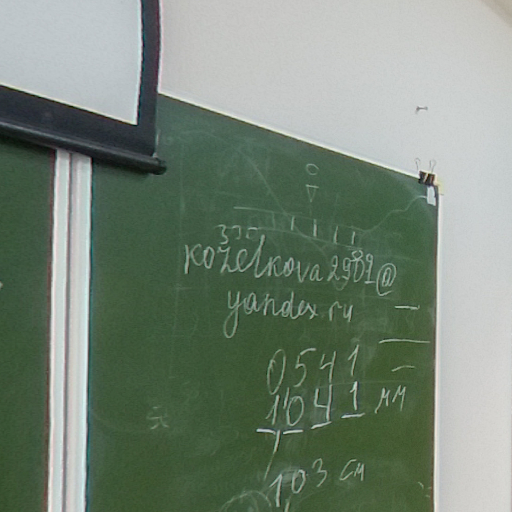 330
kozelkova2909@
yandex.ru
0541
1041 мм
103 см